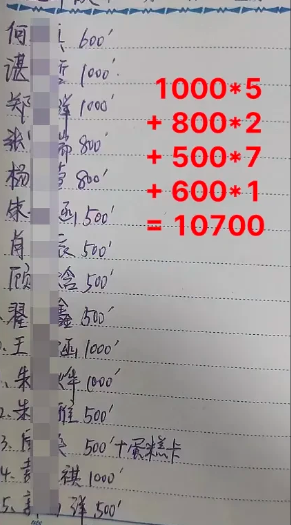 何 600'
谌 1000'
郑 洋 1000'
张 800'
杨 800'
朱 涵 500'
肖 辰 500'
顾 含 500'
翟 鑫 500'
王 涵 1000'
朱 烨 1000'
朱 雅 500'
3. 500'+蛋糕卡
4. 祺 1000'
5. 洋 500'
1000*5
+ 800*2
+ 500*7
+ 600*1
= 10700